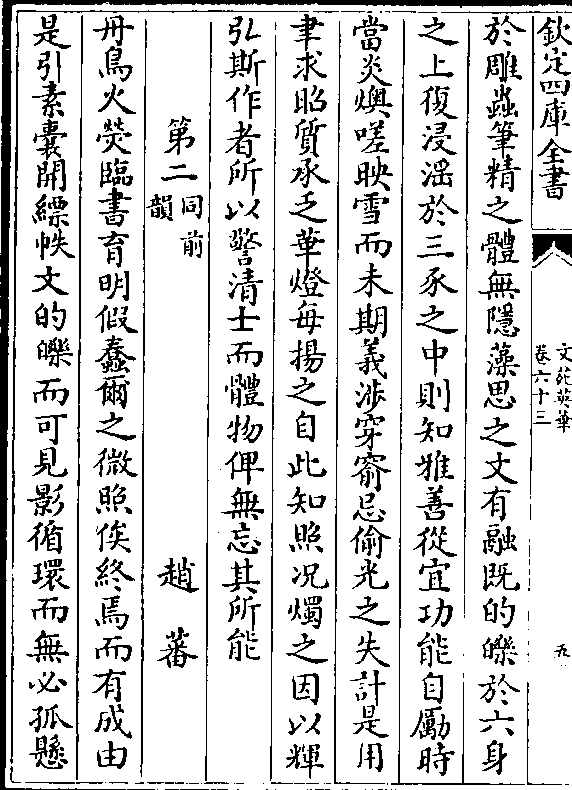 欽定四庫全書
文苑英華
卷六十三
九
於雕蟲筆精之體無隱藻思之文有融既的皪於六身
之上復浸滛於三豕之中則知雅善從宜功能自勵時
當炎燠嗟映雪而未期義涉穿窬忌偷光之失計是用
聿求昭質承乏華燈毎揚之自此知照况燭之因以輝
弘斯作者所以警清士而體物俾無忘其所能
第二
同前
韻
趙蕃
丹鳥火熒臨書育明假蠢爾之微照俟終焉而有成由
是引素囊開縹帙文的皪而可見影循環而無必孤懸